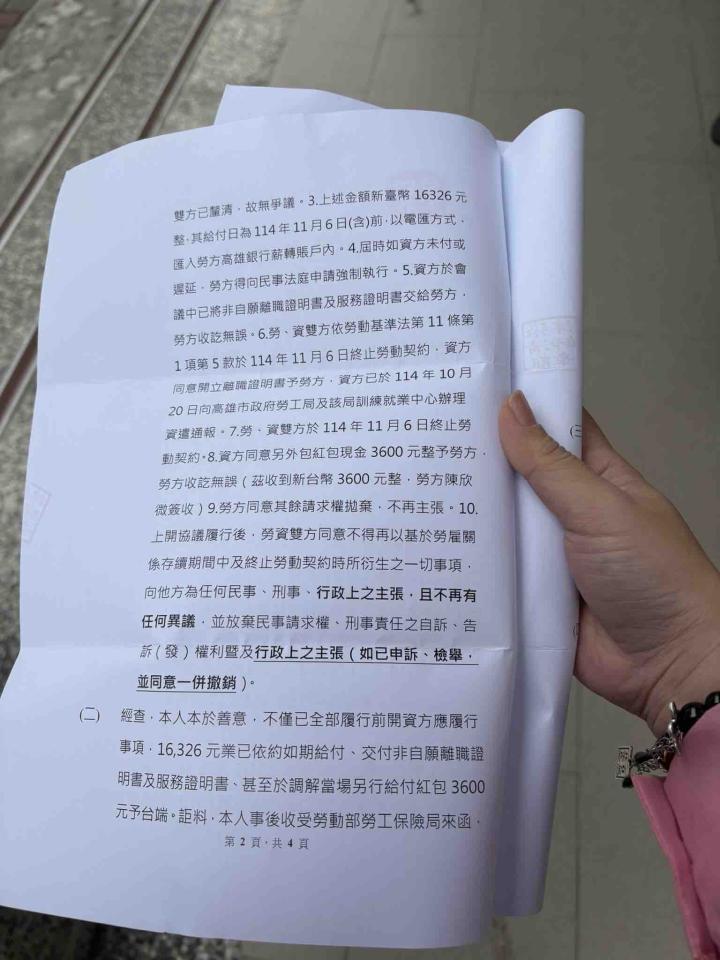 雙方已釐清，故無爭議。3.上述金額新臺幣 16326 元
整，其給付日為 114 年 11 月 6 日(含)前，以電匯方式，
匯入勞方高雄銀行薪轉賬戶內。4.屆時如資方未付或
遲延，勞方得向民事法庭申請強制執行。5.資方於會
議中已將非自願離職證明書及服務證明書交給勞方，
勞方收訖無誤。6.勞、資雙方依勞動基準法第 11 條第
1 項第 5 款於 114 年 11 月 6 日終止勞動契約，資方
同意開立離職證明書予勞方，資方已於 114 年 10 月
20 日向高雄市政府勞工局及該局訓練就業中心辦理
資遣通報。7.勞、資雙方於 114 年 11 月 6 日終止勞
動契約。8.資方同意另外包紅包現金 3600 元整予勞方，
勞方收訖無誤（茲收到新台幣 3600 元整，勞方陳欣
微簽收）9.勞方同意其餘請求權拋棄，不再主張。10.
上開協議履行後，勞資雙方同意不得再以基於勞雇關
係存續期間中及終止勞動契約時所衍生之一切事項，
向他方為任何民事、刑事、行政上之主張，且不再有
任何異議，並放棄民事請求權、刑事責任之自訴、告
訴（發）權利暨及行政上之主張（如已申訴、檢舉，
並同意一併撤銷）。
(二) 經查，本人本於善意，不僅已全部履行前開資方應履行
事項，16,326 元業已依約如期給付、交付非自願離職證
明書及服務證明書、甚至於調解當場另行給付紅包 3600
元予台端。詎料，本人事後收受勞動部勞工保險局來函，
第 2 頁，共 4 頁